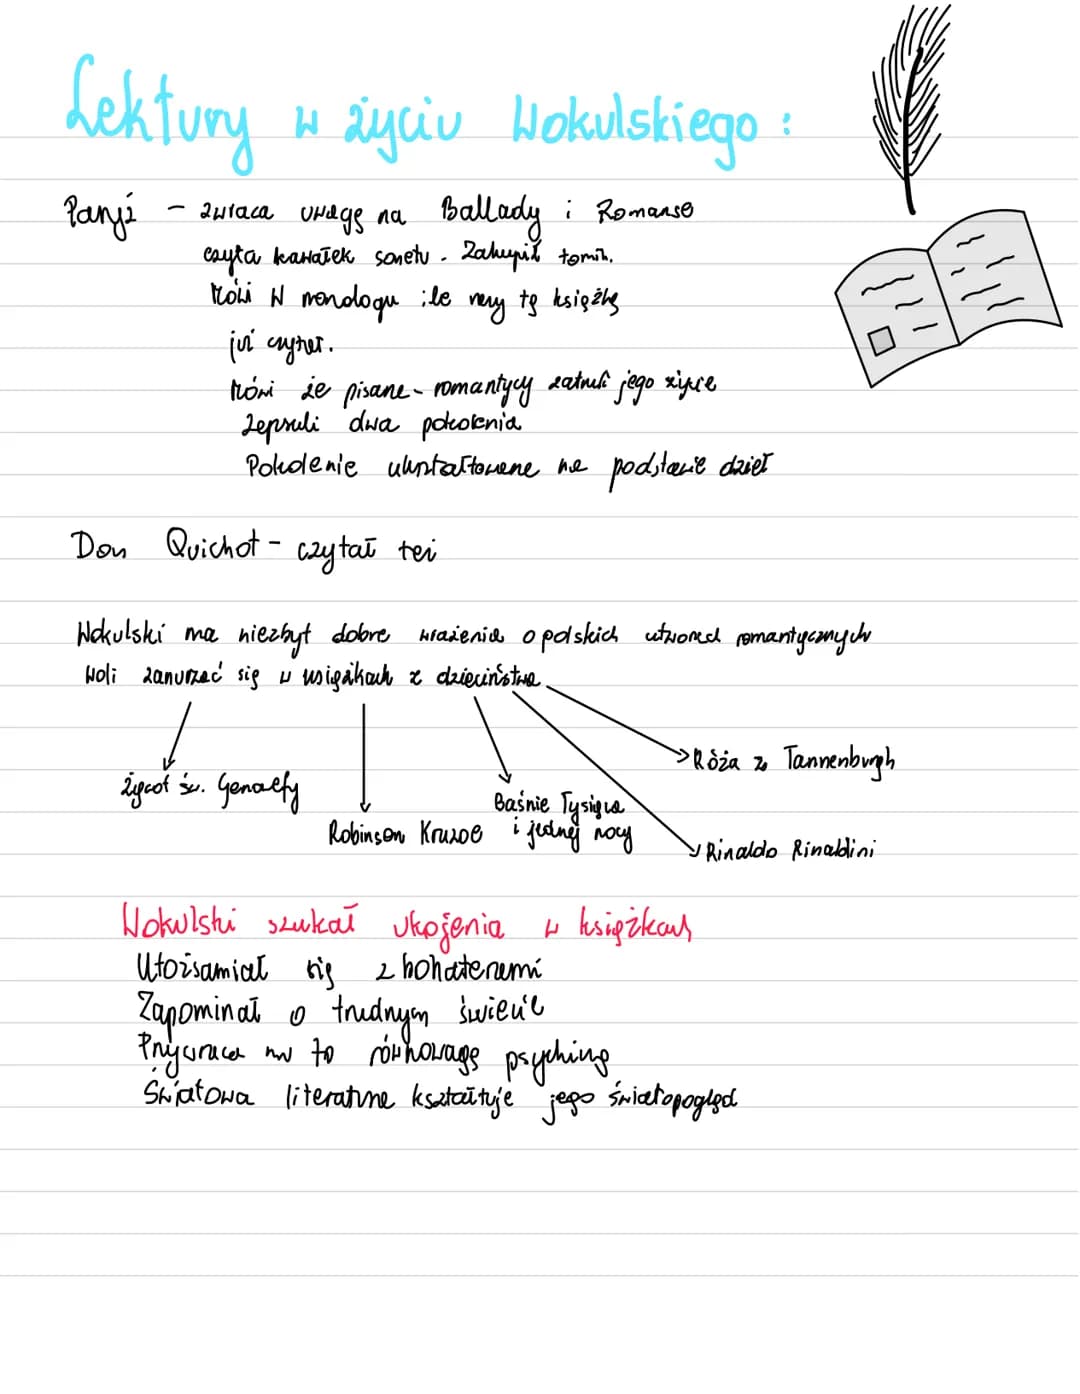 Lektury w życiu Wokulskiego :
Paryż - zwraca uwagę na Ballady i Romanse
czyta kawałek sonetu. Zakupił tomik.
Mówi w monologu ile razy tę książkę
już czytał.
Mówi że pisane - romantycy zatruli jego życie
Zepsuli dwa pokolenia
Pokolenie ukształtowane na podstawie dzieł
Don Quichot - czytał też
Wokulski ma niezbyt dobre wrażenia o polskich utworach romantycznych
Woli zanurzać się w książkach z dzieciństwa
Róża z Tannenburgh
Żywot św. Genowefy
Baśnie Tysiąca
Robinson Kruzoe i jednej nocy
Rinaldo Rinaldini
Wokulski szukał ukojenia w książkach
Utożsamiał się z bohaterami
Zapominał o trudnym świecie
Przywraca mu to równowagę psychiną
Światowa literatura kształtuje jego światopogląd